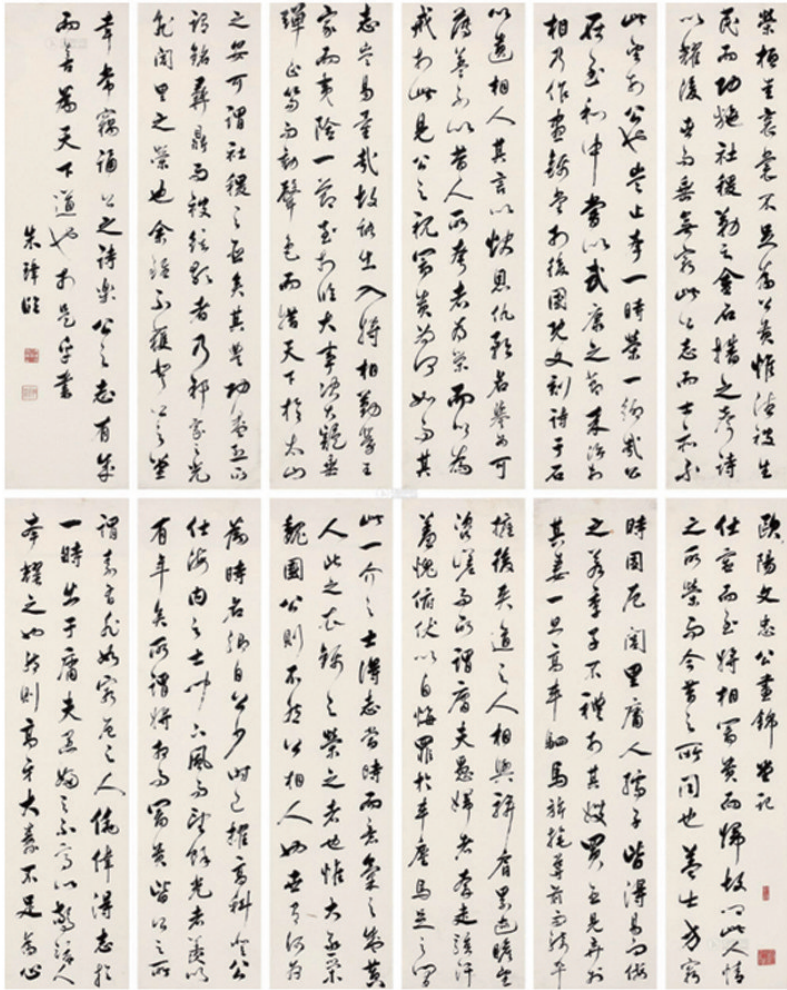 歐陽文忠公晝錦堂記
仕宦而至將相富貴而歸故鄉此人情
之所榮而今昔之所同也蓋士方窮
時困厄閭里庸人孺子皆得易而侮
之若季子不禮於其嫂買臣見棄於
其妻一旦高車駟馬旗旄導前而騎卒
擁後夾道之人相與駢肩累迹瞻望
咨嗟而所謂庸夫愚婦者奔走駭汗
羞愧俯伏以自悔罪於車塵馬足之間
此一介之士得志當時而意氣之盛昔
人比之衣錦之榮者也惟大丞相
魏國公則不然公相人也世有令德
為時名卿自公少時已擢高科登
仕海內之士聞下風而望餘光者蓋亦
有年矣所謂將相而富貴皆公之所
謂素有非如窮厄之人僥倖得志於
一時出于庸夫愚婦之不意以驚駭人
夸耀之也然則高牙大纛不足為公
榮桓圭袞裳不足為公貴惟德被生
民而功施社稷勒之金石播之聲詩
以耀後世而垂無窮此公之志而士亦以
此望於公也豈止夸一時榮一鄉哉公
在至和中嘗以武康之節來治於
相乃作晝錦堂於後圃既又刻詩于石
以遺相人其言以快恩仇矜名譽為可
薄蓋不以昔人所夸者為榮而以為
戒於此見公之視富貴為何如而其
志豈易量哉故能出入將相勤勞王
家而夷險一節至於臨大事決大疑垂
紳正笏不動聲色而措天下於太山
之安可謂社稷之臣矣其豐功盛烈所
以銘彝鼎而被絃歌者乃邦家之光
非閭里之榮也余雖不獲登公之堂
幸嘗竊誦公之詩樂公之志有成
而喜為天下道也於是乎書